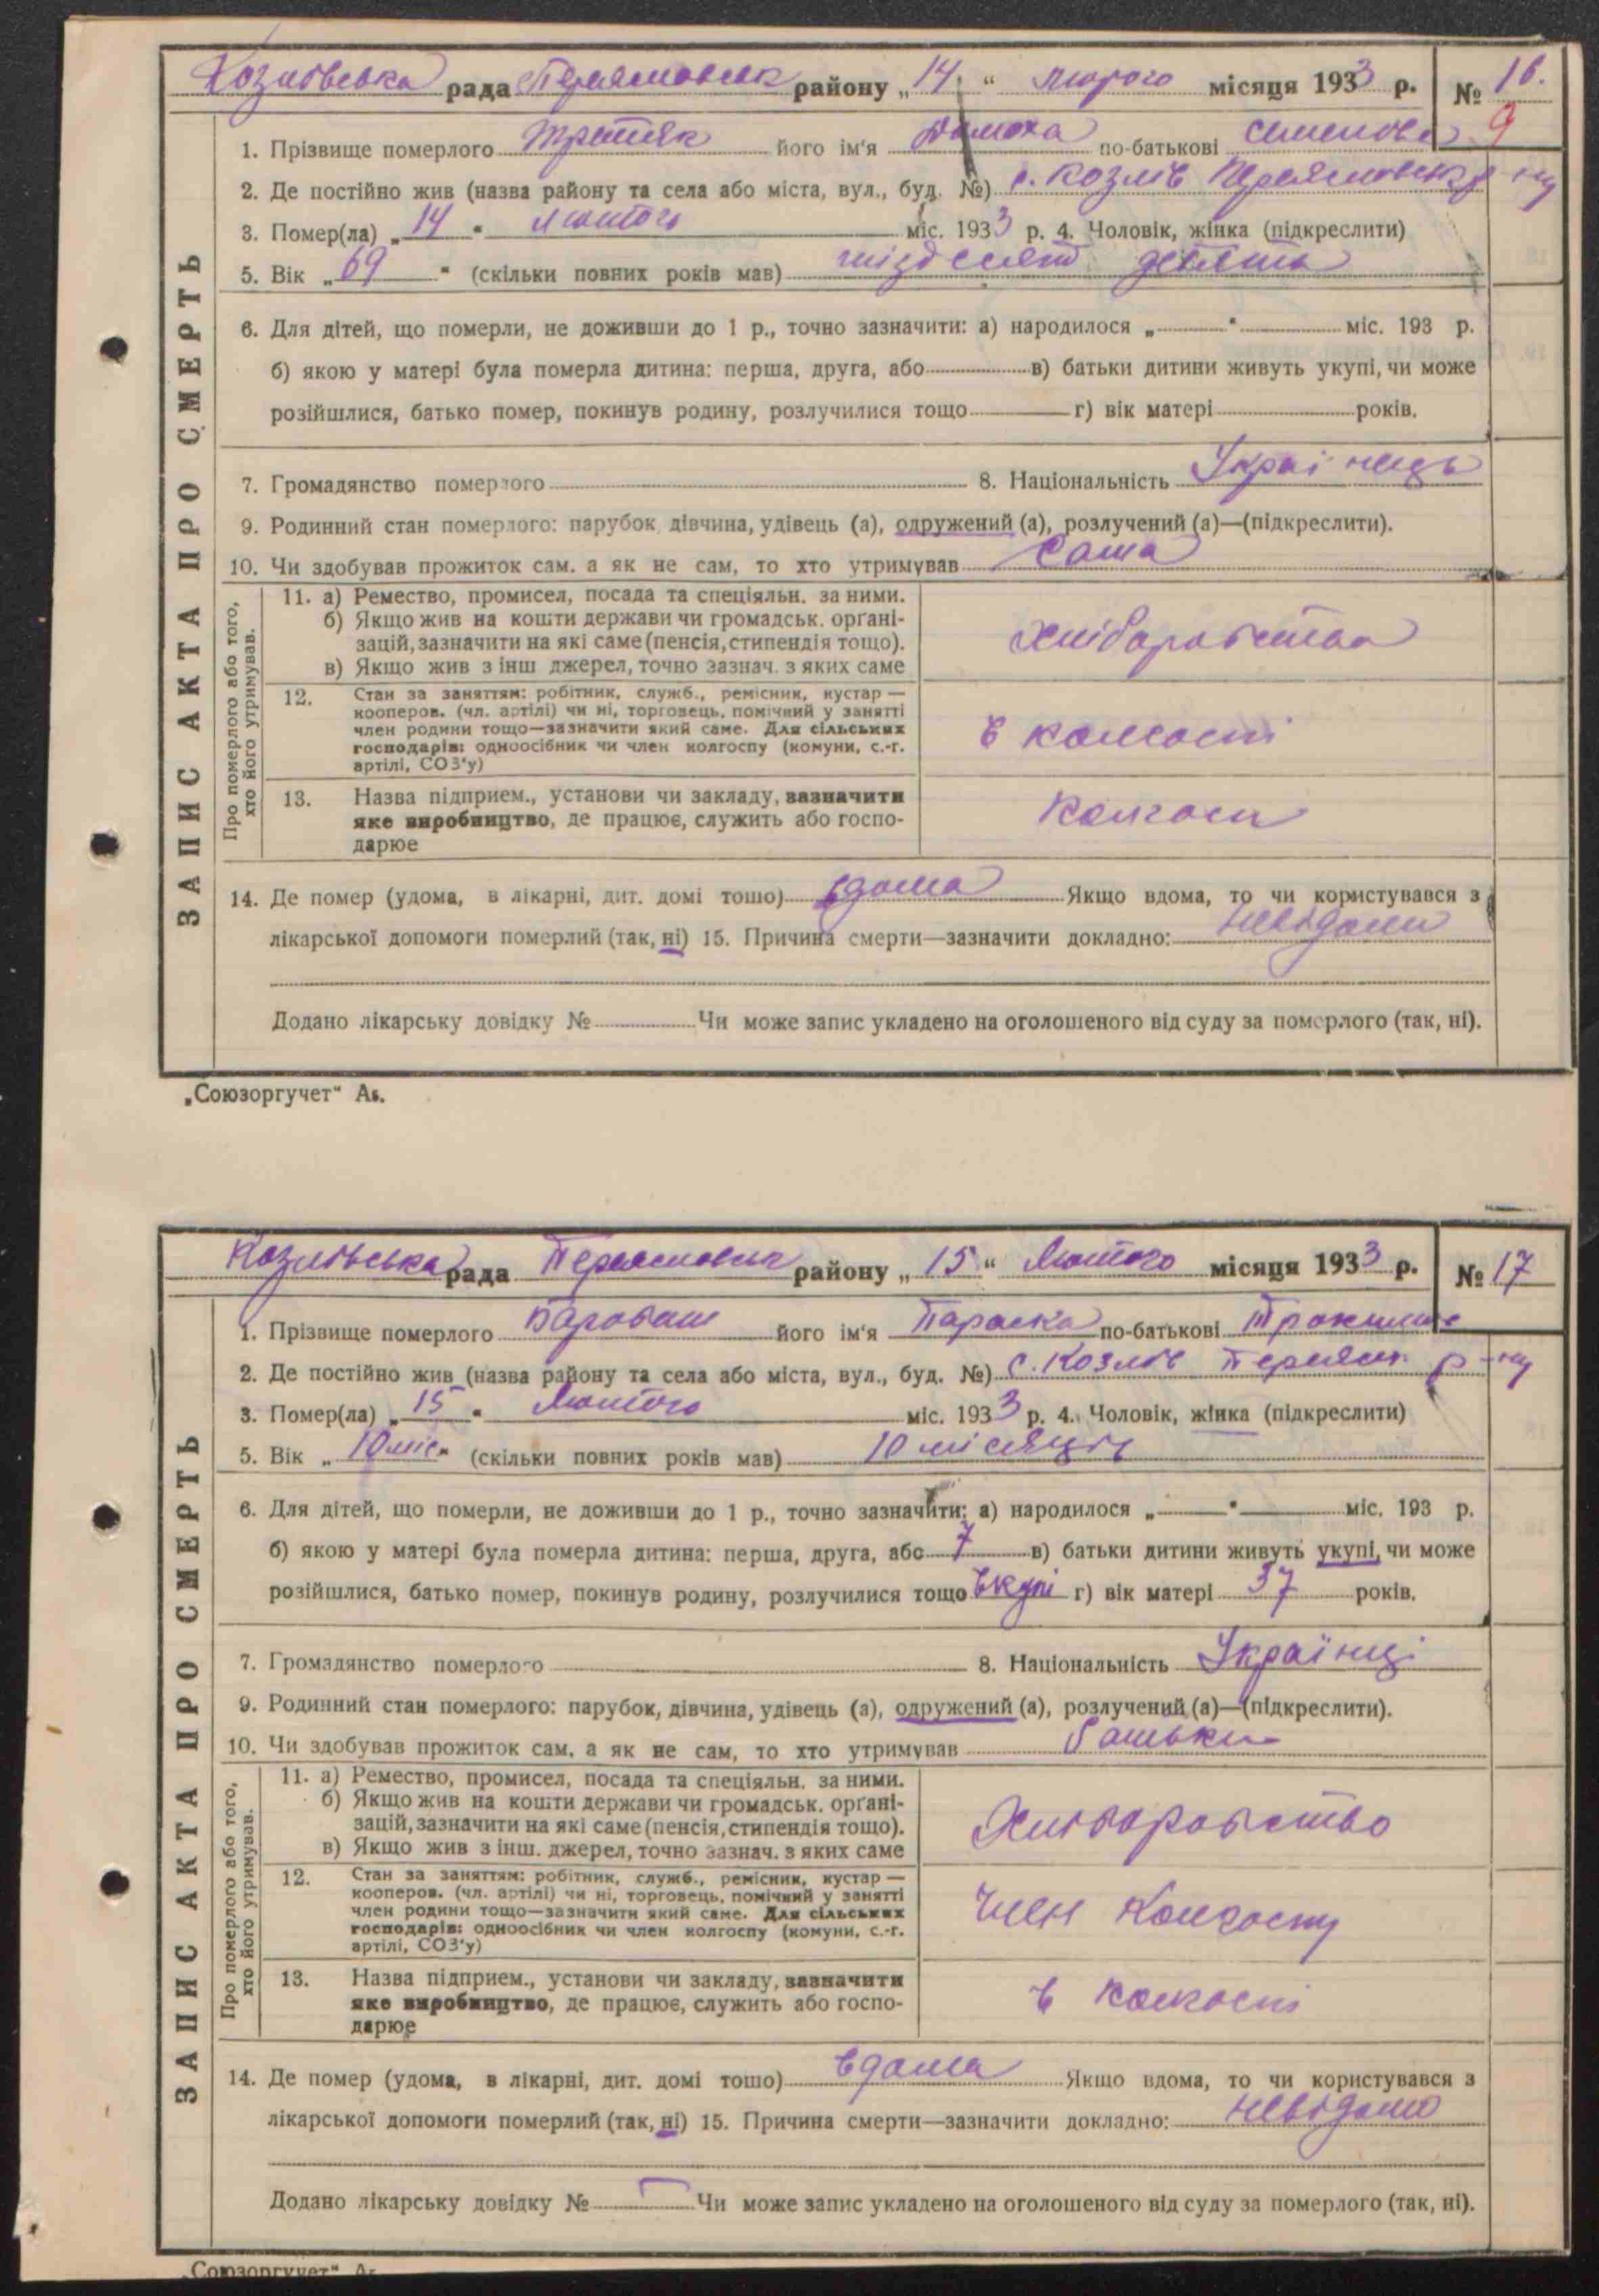 Козлівська рада Переяславськ району „14“ лютого місяця 1933 р. № 16.
9
1. Прізвище померлого Третяк його ім'я по-батькові Семенова
2. Де постійно жив (назва району та села або міста, вул., буд. №) с. Козлів Переяславськ р-ну
3. Помер(ла) „14“ лютого міс. 1933 р. 4. Чоловік, жінка (підкреслити)
5. Вік „69“ (скільки повних років мав) шіздесят девять
6. Для дітей, що померли, не доживши до 1 р., точно зазначити: а) народилося „ “ міс. 193 р.
б) якою у матері була померла дитина: перша, друга, або в) батьки дитини живуть укупі, чи може
розійшлися, батько помер, покинув родину, розлучилися тощо г) вік матері років.
7. Громадянство померлого 8. Національність Украінець
9. Родинний стан померлого: парубок дівчина, удівець (а), одружений (а), розлучений (а)—(підкреслити).
10. Чи здобував прожиток сам. а як не сам, то хто утримував Сама
11. а) Ремество, промисел, посада та спеціяльн. за ними.
б) Якщо жив на кошти держави чи громадськ. орґані-
зацій, зазначити на які саме (пенсія, стипендія тощо).
в) Якщо жив з інш джерел, точно зазнач. з яких саме
хліборобство
12. Стан за заняттям: робітник, служб., ремісник, кустар —
кооперов. (чл. артілі) чи ні, торговець, помічний у занятті
член родини тощо—зазначити який саме. Для сільських
господарів: одноосібник чи член колгоспу (комуни, с.-г.
артілі, СОЗ'у)
в колгоспі
13. Назва підприєм., установи чи закладу, зазначити
яке виробництво, де працює, служить або госпо-
дарює
Колгосп
Про померлого або того,
хто його утримував.
14. Де помер (удома, в лікарні, дит. домі тощо) вдома Якщо вдома, то чи користувався з
лікарської допомоги померлий (так, ні) 15. Причина смерти—зазначити докладно: невідома
Додано лікарську довідку № Чи може запис укладено на оголошеного від суду за померлого (так, ні).
ЗАПИС АКТА ПРО СМЕРТЬ
„Союзоргучет“ А5.
Козлівська рада Переяславськ району „15“ Лютого місяця 1933 р. № 17
1. Прізвище померлого Барабаш його ім'я Параска по-батькові
2. Де постійно жив (назва району та села або міста, вул., буд. №) с. Козлів Переяслв р-ну
3. Помер(ла) „15“ Лютого міс. 1933 р. 4. Чоловік, жінка (підкреслити)
5. Вік „10 міс“ (скільки повних років мав) 10 місяців
6. Для дітей, що померли, не доживши до 1 р., точно зазначити: а) народилося „ “ міс. 193 р.
б) якою у матері була померла дитина: перша, друга, або 7 в) батьки дитини живуть укупі, чи може
розійшлися, батько помер, покинув родину, розлучилися тощо вкупі г) вік матері 37 років.
7. Громадянство померлого 8. Національність Українці
9. Родинний стан померлого: парубок, дівчина, удівець (а), одружений (а), розлучений (а)—(підкреслити).
10. Чи здобував прожиток сам. а як не сам, то хто утримував батьки
11. а) Ремество, промисел, посада та спеціяльн. за ними.
б) Якщо жив на кошти держави чи громадськ. орґані-
зацій, зазначити на які саме (пенсія, стипендія тощо).
в) Якщо жив з інш. джерел, точно зазнач. з яких саме
Хліборобство
12. Стан за заняттям: робітник, служб., ремісник, кустар —
кооперов. (чл. артілі) чи ні, торговець, помічний у занятті
член родини тощо—зазначити який саме. Для сільських
господарів: одноосібник чи член колгоспу (комуни, с.-г.
артілі, СОЗ'у)
Член Колгоспу
13. Назва підприєм., установи чи закладу, зазначити
яке виробництво, де працює, служить або госпо-
дарює
в колгоспі
Про померлого або того,
хто його утримував.
14. Де помер (удома, в лікарні, дит. домі тощо) вдома Якщо вдома, то чи користувався з
лікарської допомоги померлий (так, ні) 15. Причина смерти—зазначити докладно: невідомо
Додано лікарську довідку № Чи може запис укладено на оголошеного від суду за померлого (так, ні).
ЗАПИС АКТА ПРО СМЕРТЬ
„Союзоргучет“ А5